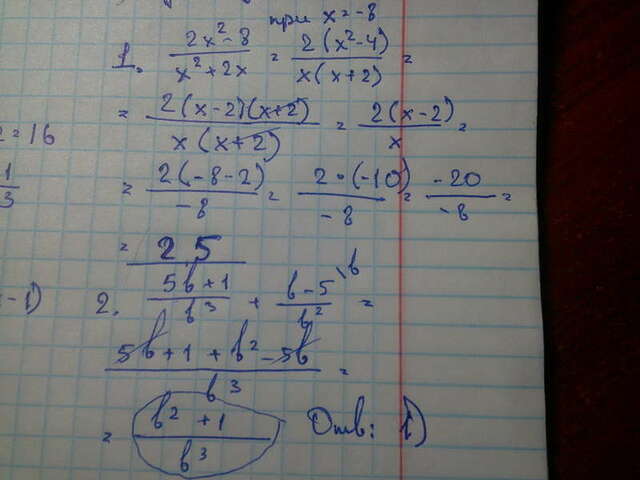 при x = -8
1. (2x² - 8)/(x² + 2x) = (2(x² - 4))/(x(x + 2)) =
= (2(x - 2)(x + 2))/(x(x + 2)) = (2(x - 2))/x =
= (2(-8 - 2))/(-8) = (2 · (-10))/(-8) = (-20)/(-8) =
= 2 5
2. (5b + 1)/b³ + (b - 5)/b² \b =
(5b + 1 + b² - 5b)/b³ =
= (b² + 1)/b³ Отв: 1)
2 = 16
1/3
- 1)